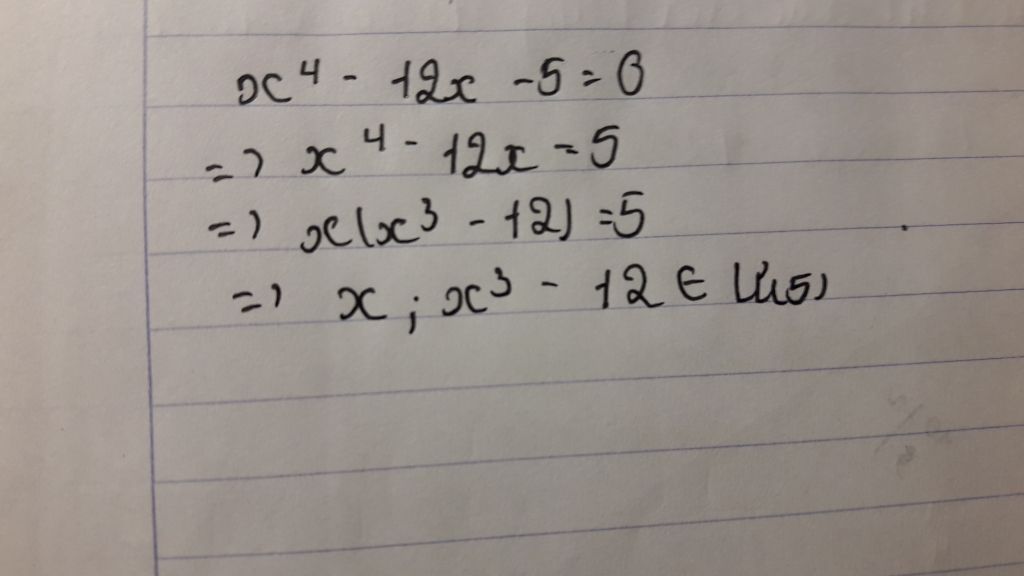 x⁴ - 12x - 5 = 0
=> x⁴ - 12x = 5
=> x(x³ - 12) = 5
=> x ; x³ - 12 ∈ Ư(5)